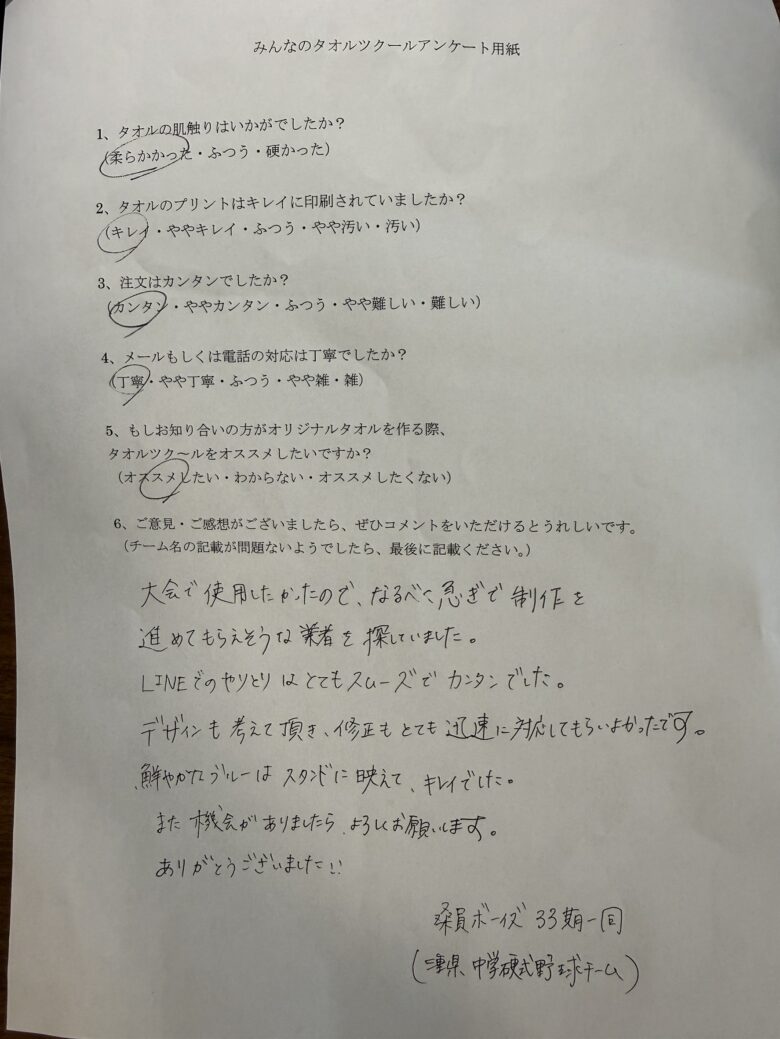 みんなのタオルツクールアンケート用紙
1、タオルの肌触りはいかがでしたか？
（柔らかかった・ふつう・硬かった）
2、タオルのプリントはキレイに印刷されていましたか？
（キレイ・ややキレイ・ふつう・やや汚い・汚い）
3、注文はカンタンでしたか？
（カンタン・ややカンタン・ふつう・やや難しい・難しい）
4、メールもしくは電話の対応は丁寧でしたか？
（丁寧・やや丁寧・ふつう・やや雑・雑）
5、もしお知り合いの方がオリジナルタオルを作る際、
タオルツク〜ルをオススメしたいですか？
（オススメしたい・わからない・オススメしたくない）
6、ご意見・ご感想がございましたら、ぜひコメントをいただけるとうれしいです。
（チーム名の記載が問題ないようでしたら、最後に記載ください。）
大会で使用したかったので、なるべく急ぎで制作を
進めてもらえそうな業者を探していました。
LINEでのやりとりはとてもスムーズでカンタンでした。
デザインも考えて頂き、修正もとても迅速に対応してもらいよかったです。
鮮やかなブルーはスタンドに映えて、キレイでした。
また機会がありましたら、よろしくお願いします。
ありがとうございました!!
桑員ボーイズ 33期一同
（三重県 中学硬式野球チーム）